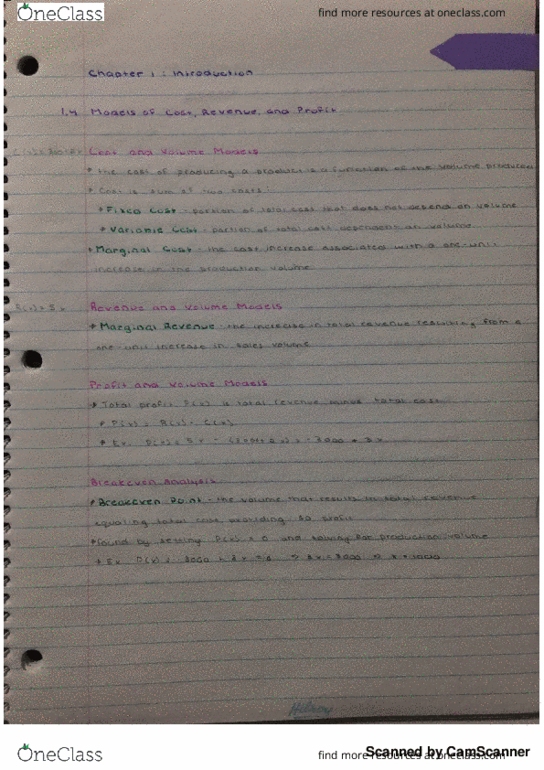 OneClass
find more resources at oneclass.com
Chapter 1: Introduction
1.4 Models of Cost, Revenue, and Profit
Cost and Volume Models
• The cost of producing a product is a function of the volume produced
• Cost is sum of two costs:
• Fixed Cost - portion of total cost that does not depend on volume
• Variable Cost - portion of total cost dependent on volume
• Marginal Cost - the cost increase associated with a one-unit
increase in the production volume
Revenue and Volume Models
• Marginal Revenue - the increase in total revenue resulting from a
one-unit increase in sales volume
Profit and Volume Models
• Total profit P(x) is total revenue minus total cost
• P(x) = R(x) - C(x)
• Ex. P(x) = 5x - (3000 + 2x) = -3000 + 3x
Breakeven Analysis
• Breakeven Point - the volume that results in total revenue
equaling total cost providing $0 profit
• found by setting P(x) = 0 and solving for production volume
• Ex. P(x) = -3000 + 3x = 0 → 3x = 3000 → x = 1000
OneClass
find more resources at oneclass.com
Scanned by CamScanner